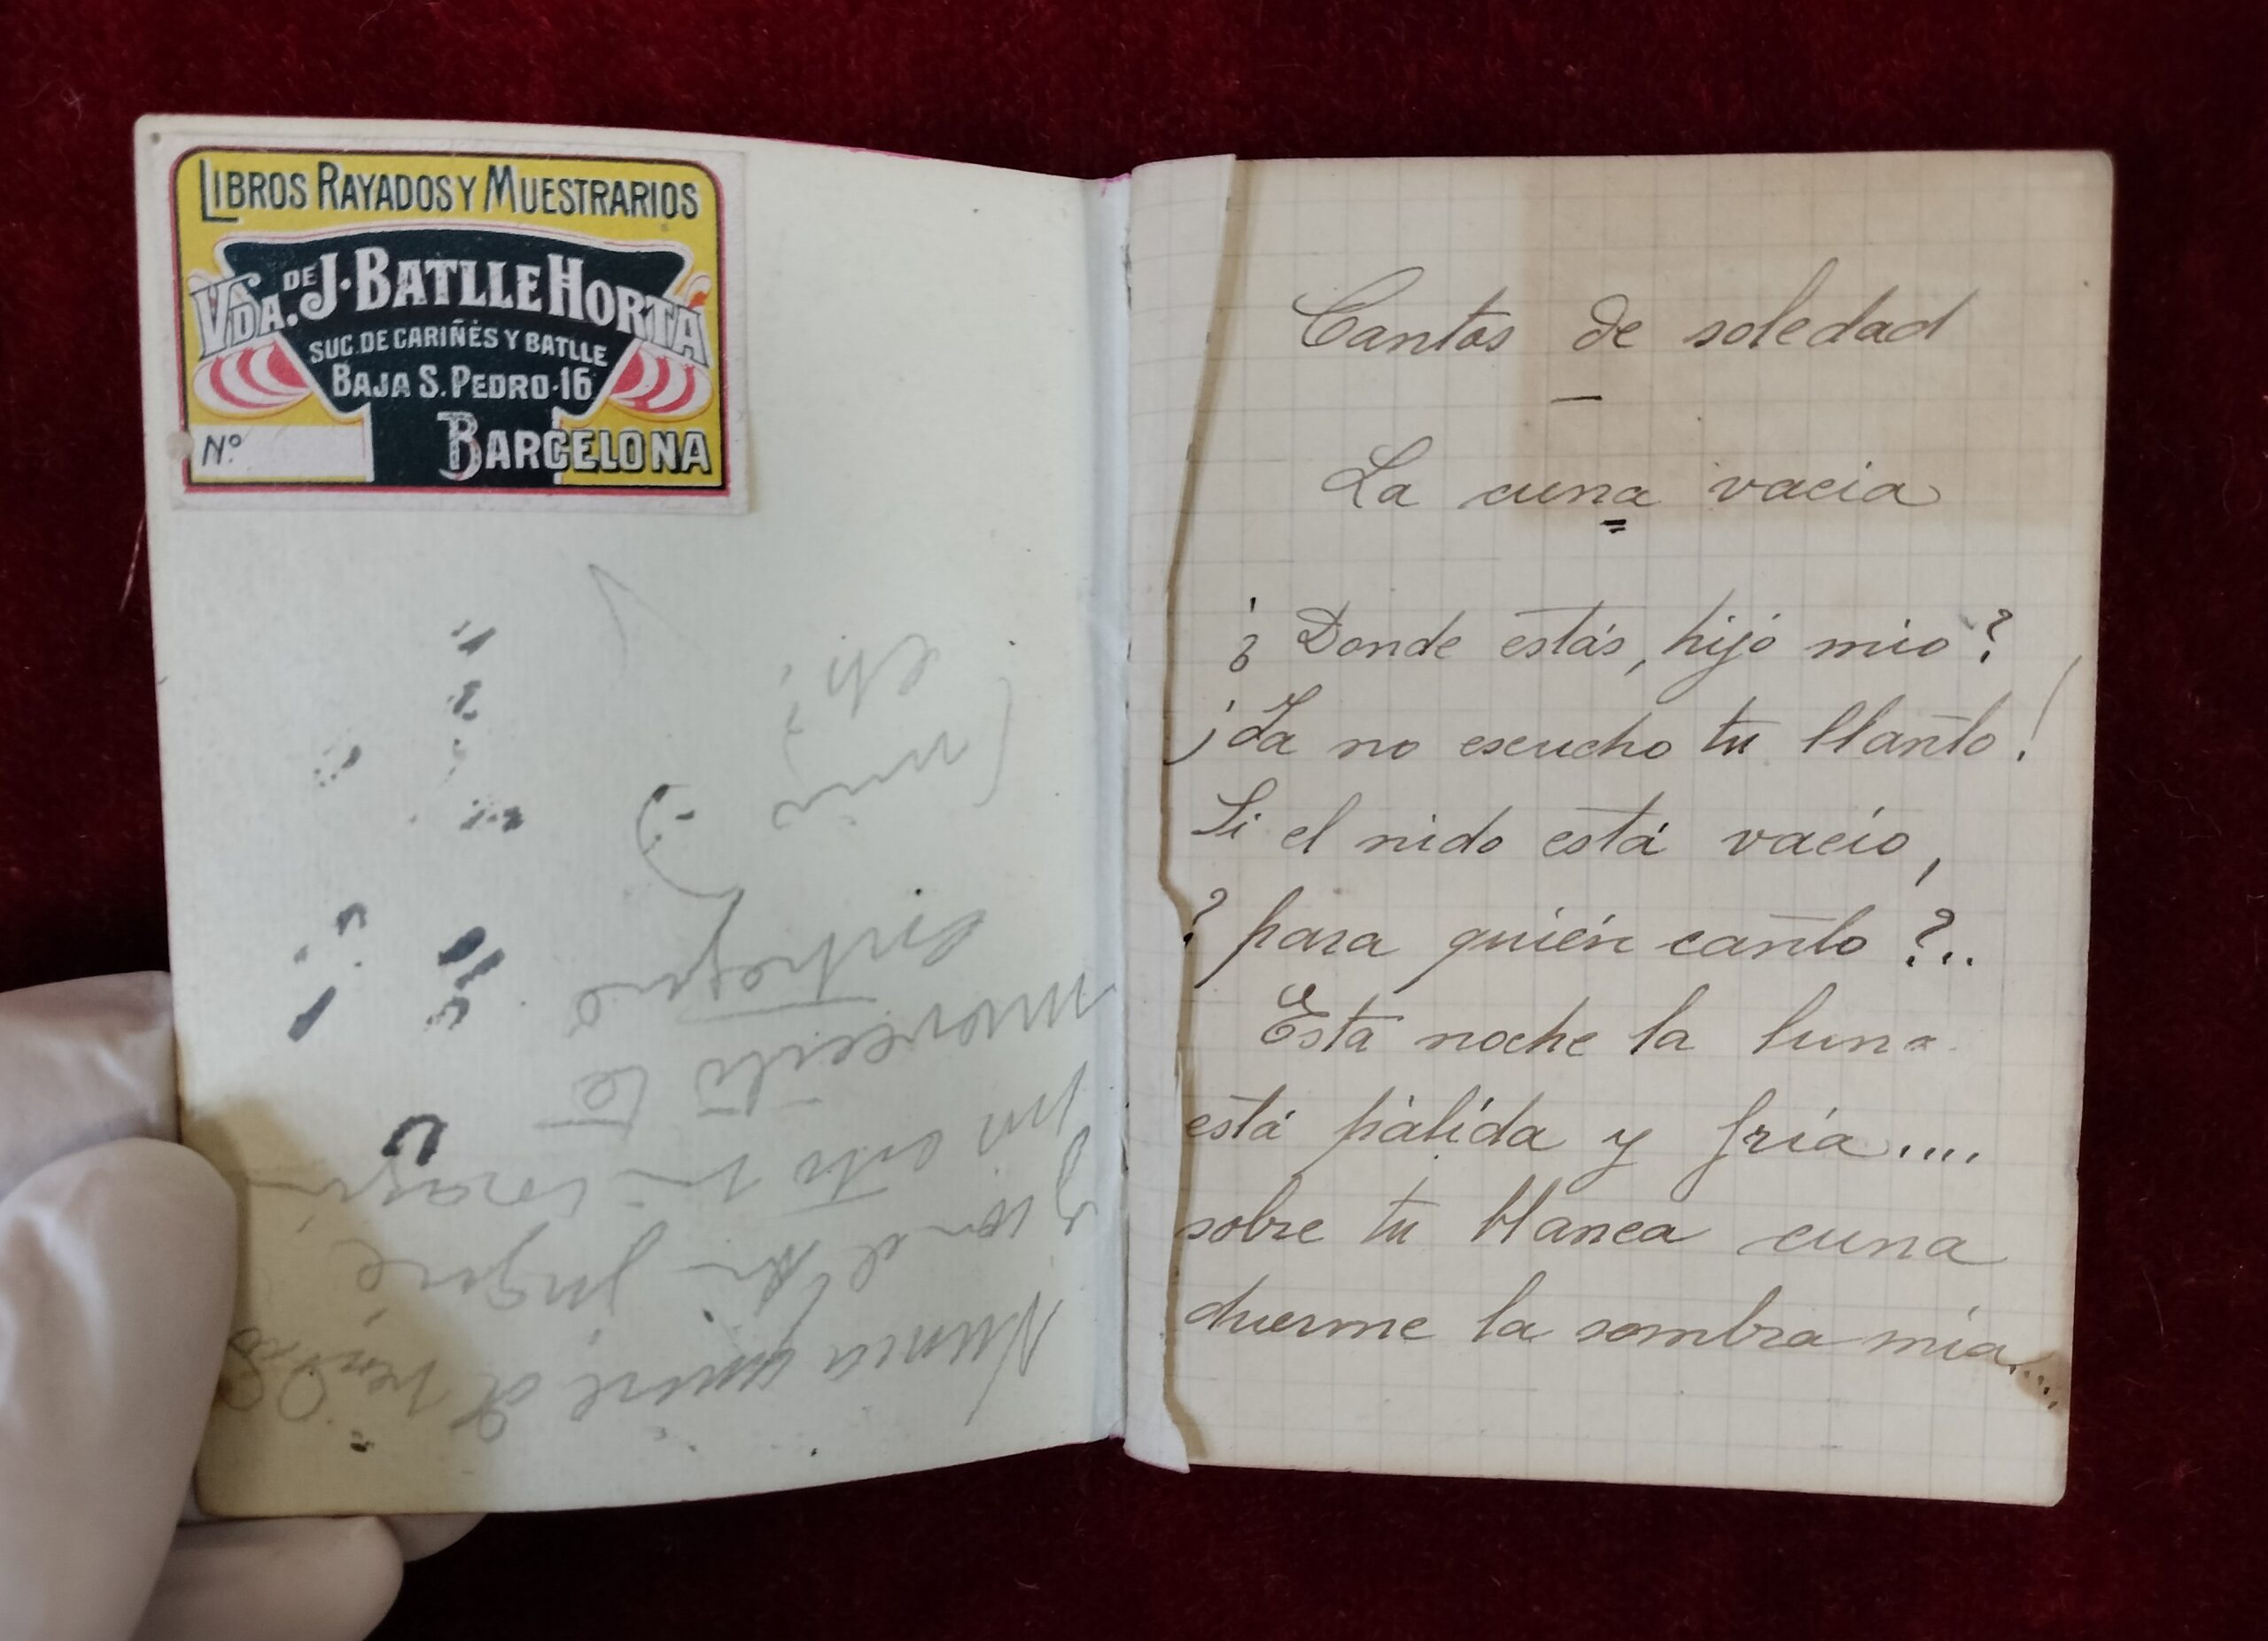 LIBROS RAYADOS Y MUESTRARIOS
VDA. DE J. BATLLE HORTA
SUC. DE CARIÑÉS Y BATLLE
BAJA S. PEDRO·16
Nº BARCELONA
Nunca
y con el
por esto mi
te
entregué
(mio
eh?
Cantos de soledad
La cuna vacia
¿Donde estás, hijo mio?
¡Ya no escucho tu llanto!
Si el nido está vacío,
? para quién canto?..
Esta noche la luna
está pálida y fría....
sobre tu blanca cuna
duerme la sombra mía....